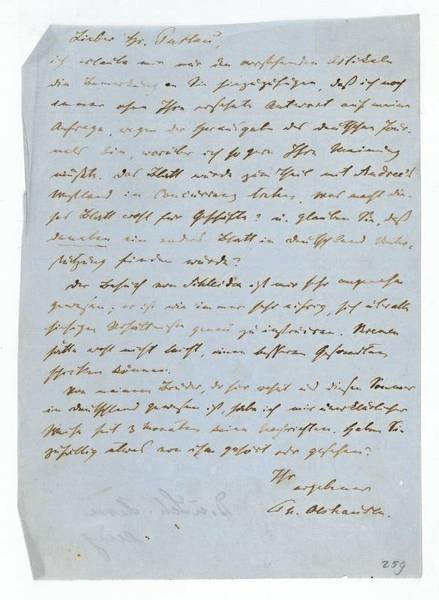 Lieber Hr. Puttau,
ich erlaube mir nur den vorstehenden Artikeln
die Bemerkung an Sie hinzuzufügen, daß ich noch
immer ohne Ihre ersehnte Antwort auf meine
Anfrage, wegen der Herausgabe des deutschen Jour-
nals bin, worüber ich so gern Ihre Meinung
wüßte. Das Blatt würde zum Theil mit Andree's
Westland in Concurrenz treten. Was macht die-
ses Blatt wohl für Geschäfte? u. glauben Sie, daß
daneben ein andres Blatt in Deutschland Unter-
stützung finden würde?
Der Besuch von Schleiden ist mir sehr angenehm
gewesen, er ist wie immer sehr eifrig, sich über alle
hiesigen Verhältnisse genau zu instruiren. Bremen
hätte wohl nicht leicht einen besseren Gesandten
schicken können.
Von meinem Bruder, der hier wohnt und diesen Sommer
in Deutschland gewesen ist, habe ich mir unerklärlicher
Weise seit 3 Monaten keine Nachrichten. Haben Sie
zufällig etwas von ihm gehört oder gesehen?
Ihr
ergebener
Th. Olshausen.
259